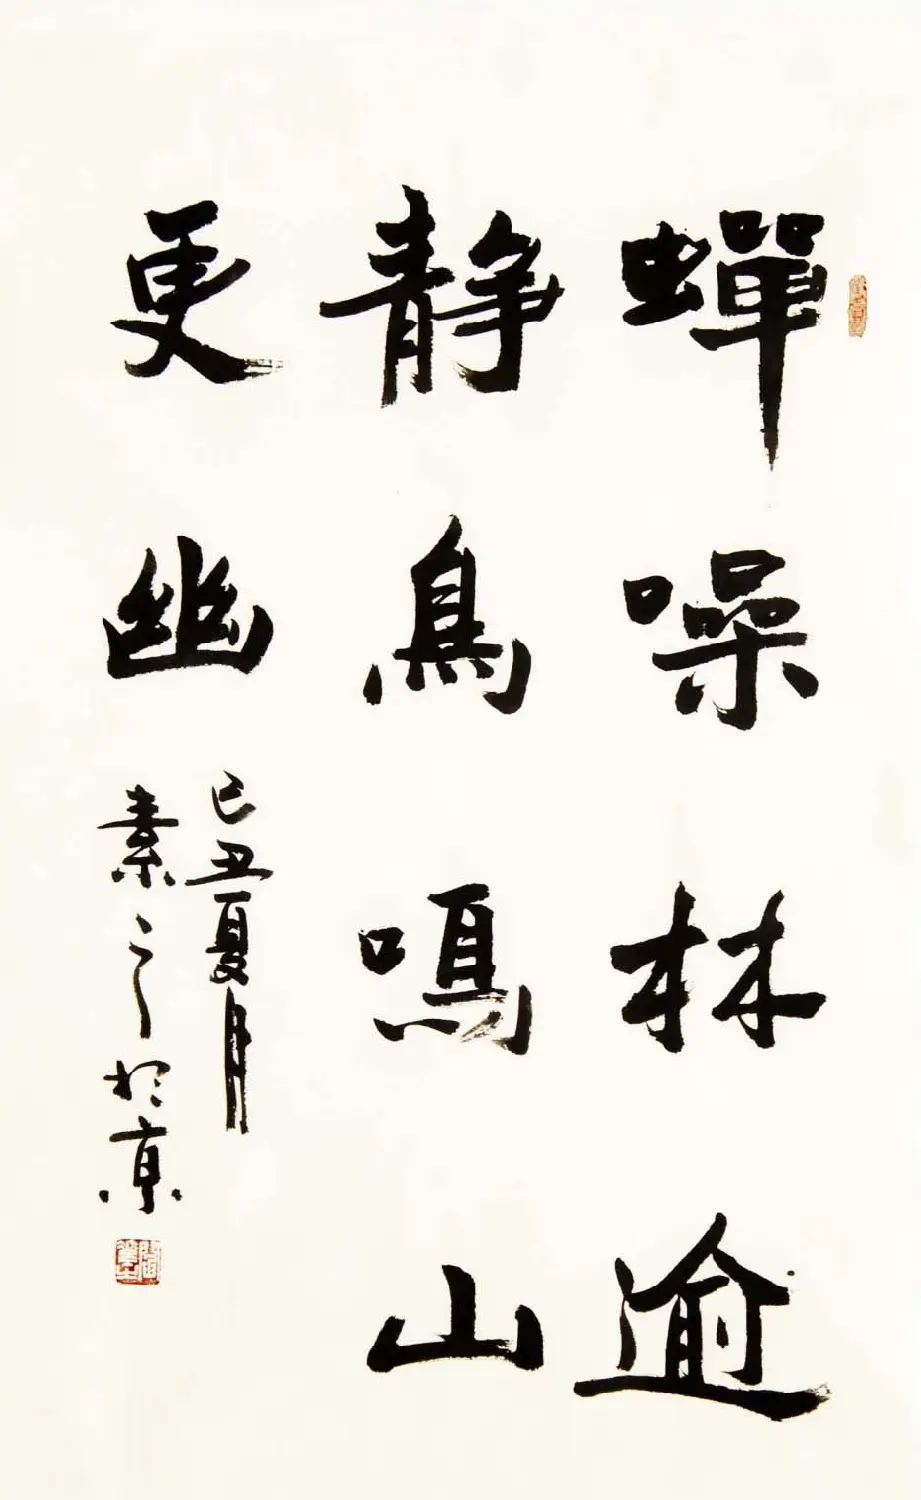 蟬噪林逾
静鳥鳴山
更幽
己丑夏月
素之於京